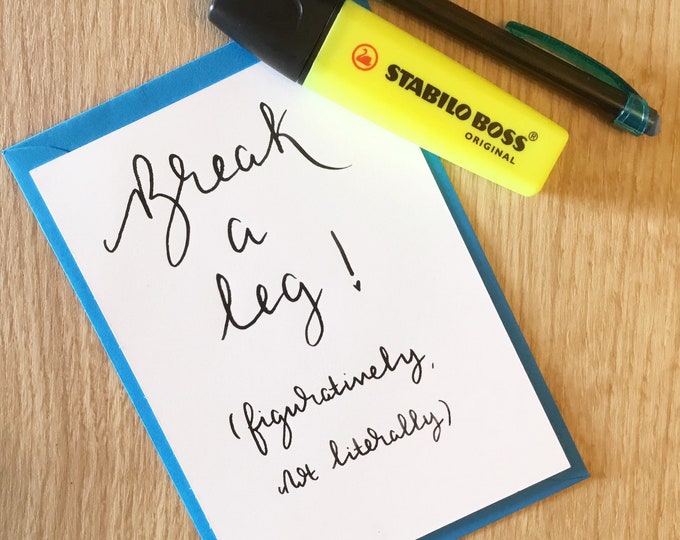 STABILO BOSS®
ORIGINAL
Break
a
leg!
(figuratively,
not literally)